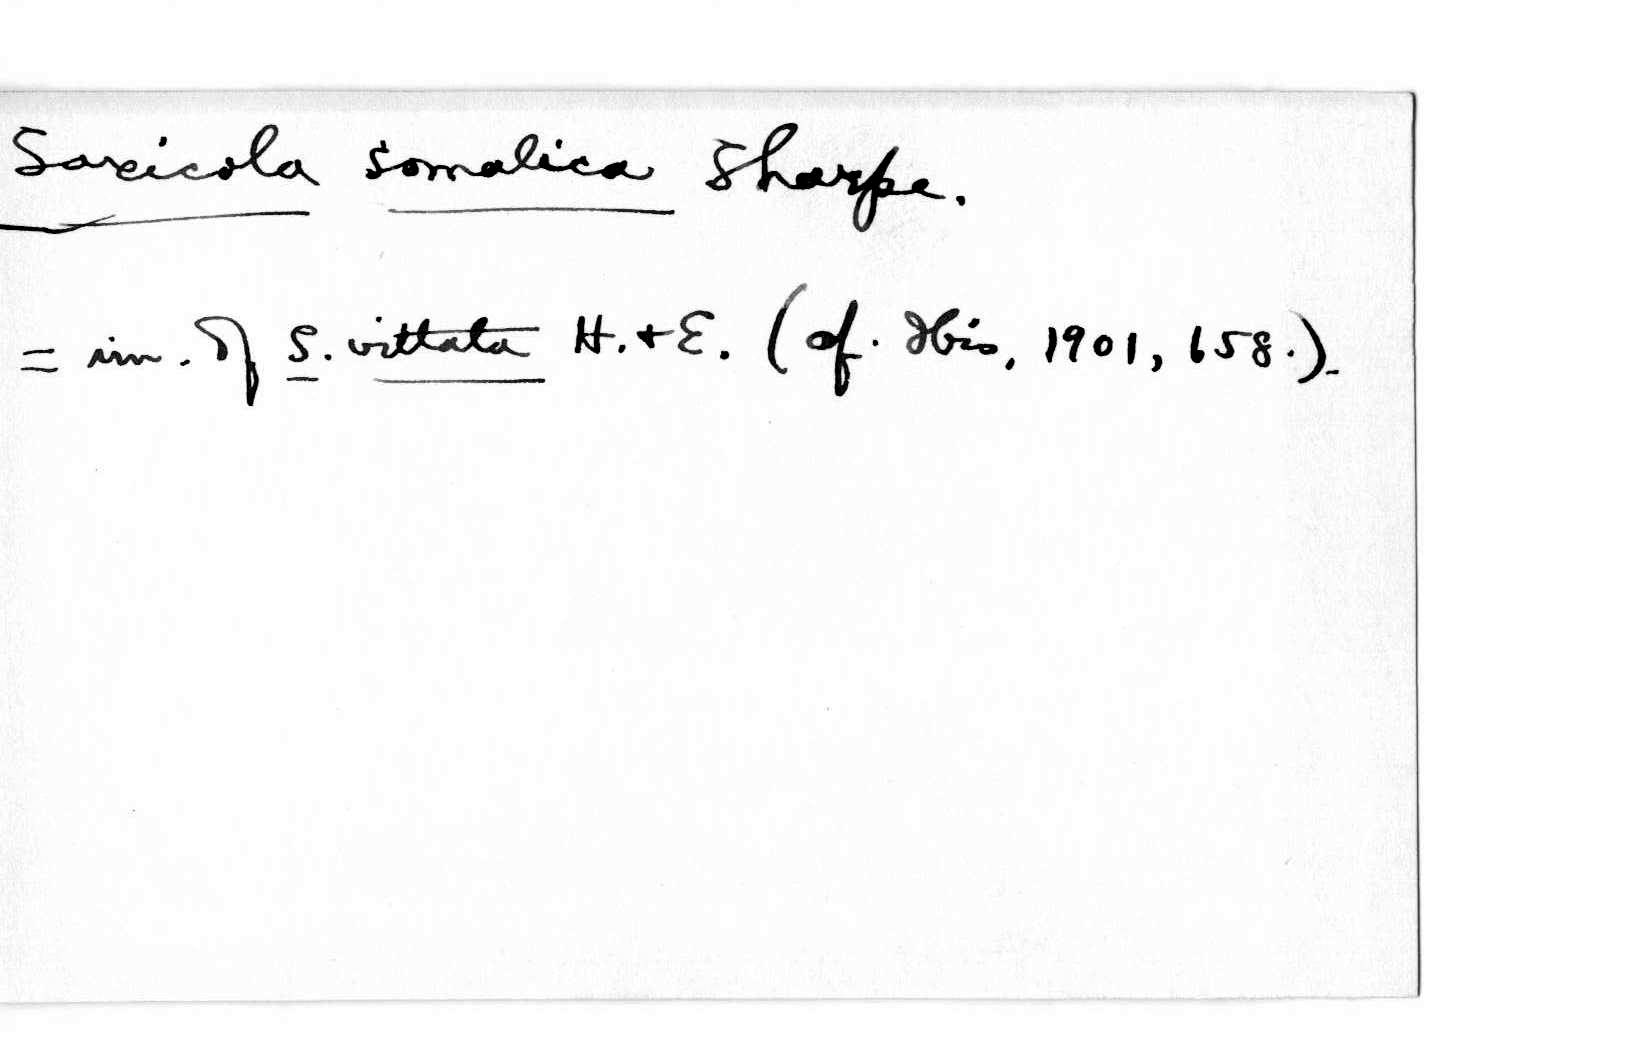 Saxicola somalica Sharpe.
= im. of S. vittata H. + E. (cf. Ibis, 1901, 658.).